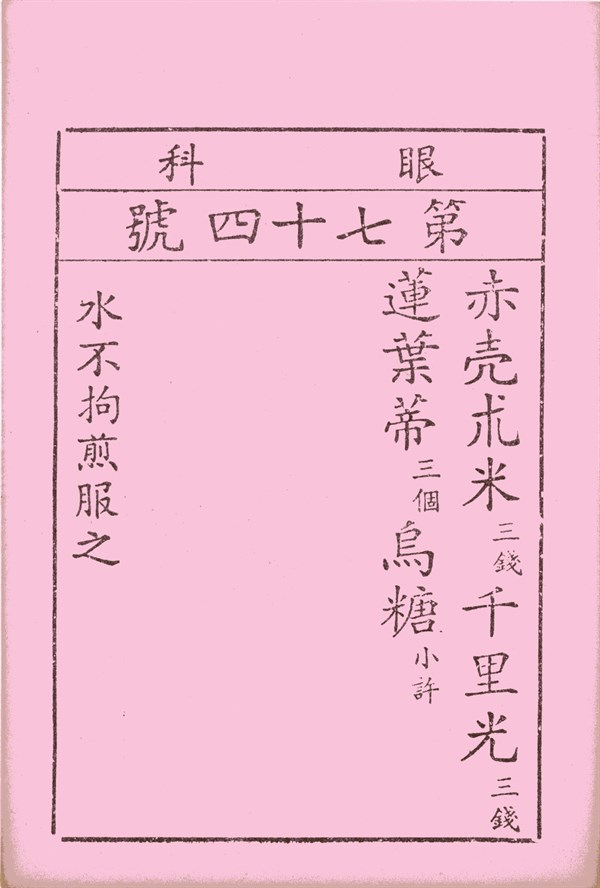 眼科
第七十四號
赤壳朮米三錢千里光三錢
蓮葉蒂三個烏糖小許
水不拘煎服之